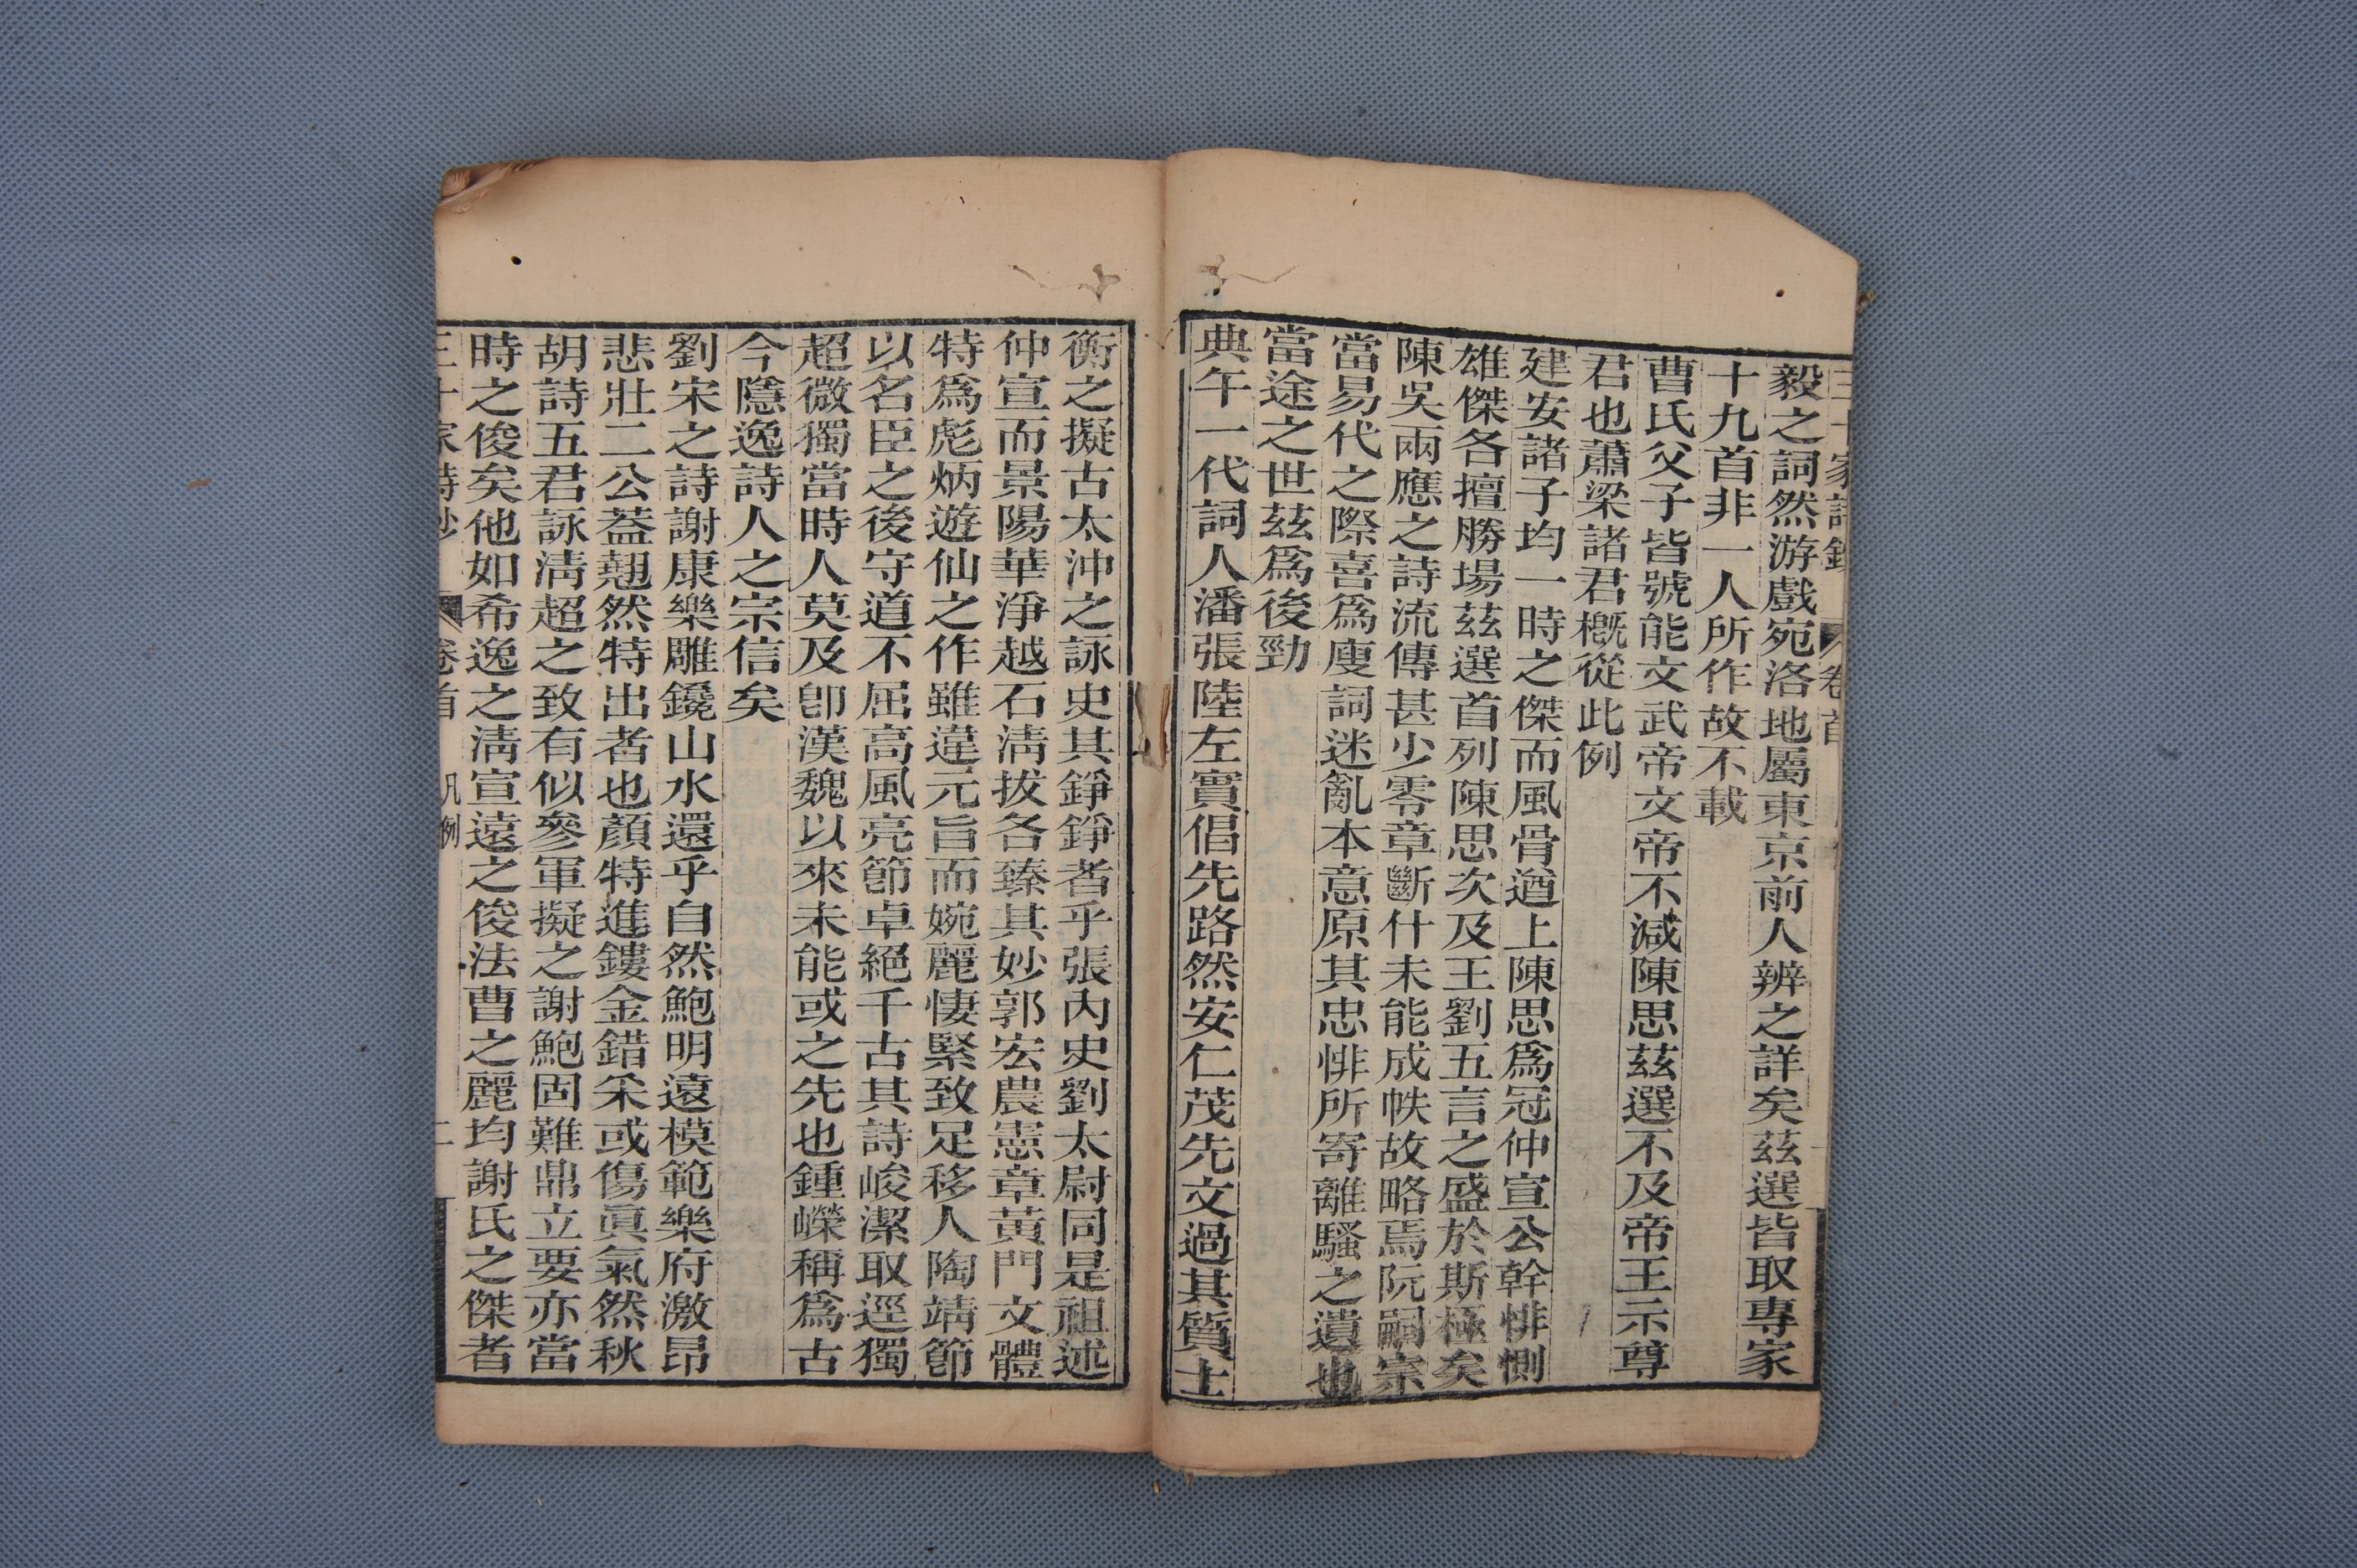 毅之詞然游戲宛洛地屬東京前人辨之詳矣茲選皆取專家
十九首非一人所作故不載
曹氏父子皆號能文武帝文帝不減陳思茲選不及帝王示尊
君也蕭梁諸君槪從此例
建安諸子均一時之傑而風骨遒上陳思爲冠仲宣公幹悱惻
雄傑各擅勝場茲選首列陳思次及王劉五言之盛於斯極矣
陳吳兩應之詩流傳甚少零章斷什未能成帙故略焉阮嗣宗
當易代之際喜爲廋詞迷亂本意原其忠悱所寄離騷之遺也
當途之世茲爲後勁
典午一代詞人潘張陸左實倡先路然安仁茂先文過其質士
衡之擬古太沖之詠史其錚錚者乎張內史劉太尉同是祖述
仲宣而景陽華淨越石淸拔各臻其妙郭宏農憲章黃門文體
特爲彪炳遊仙之作雖違元旨而婉麗悽緊致足移人陶靖節
以名臣之後守道不屈高風亮節卓絕千古其詩峻潔取逕獨
超微獨當時人莫及卽漢魏以來未能或之先也鍾嶸稱爲古
今隱逸詩人之宗信矣
劉宋之詩謝康樂雕鑱山水還乎自然鮑明遠模範樂府激昂
悲壯二公蓋翹然特出者也顏特進鏤金錯采或傷眞氣然秋
胡詩五君詠淸超之致有似參軍擬之謝鮑固難鼎立要亦當
時之俊矣他如希逸之淸宣遠之俊法曹之麗均謝氏之傑者
三十家詩鈔 卷首 凡例 二